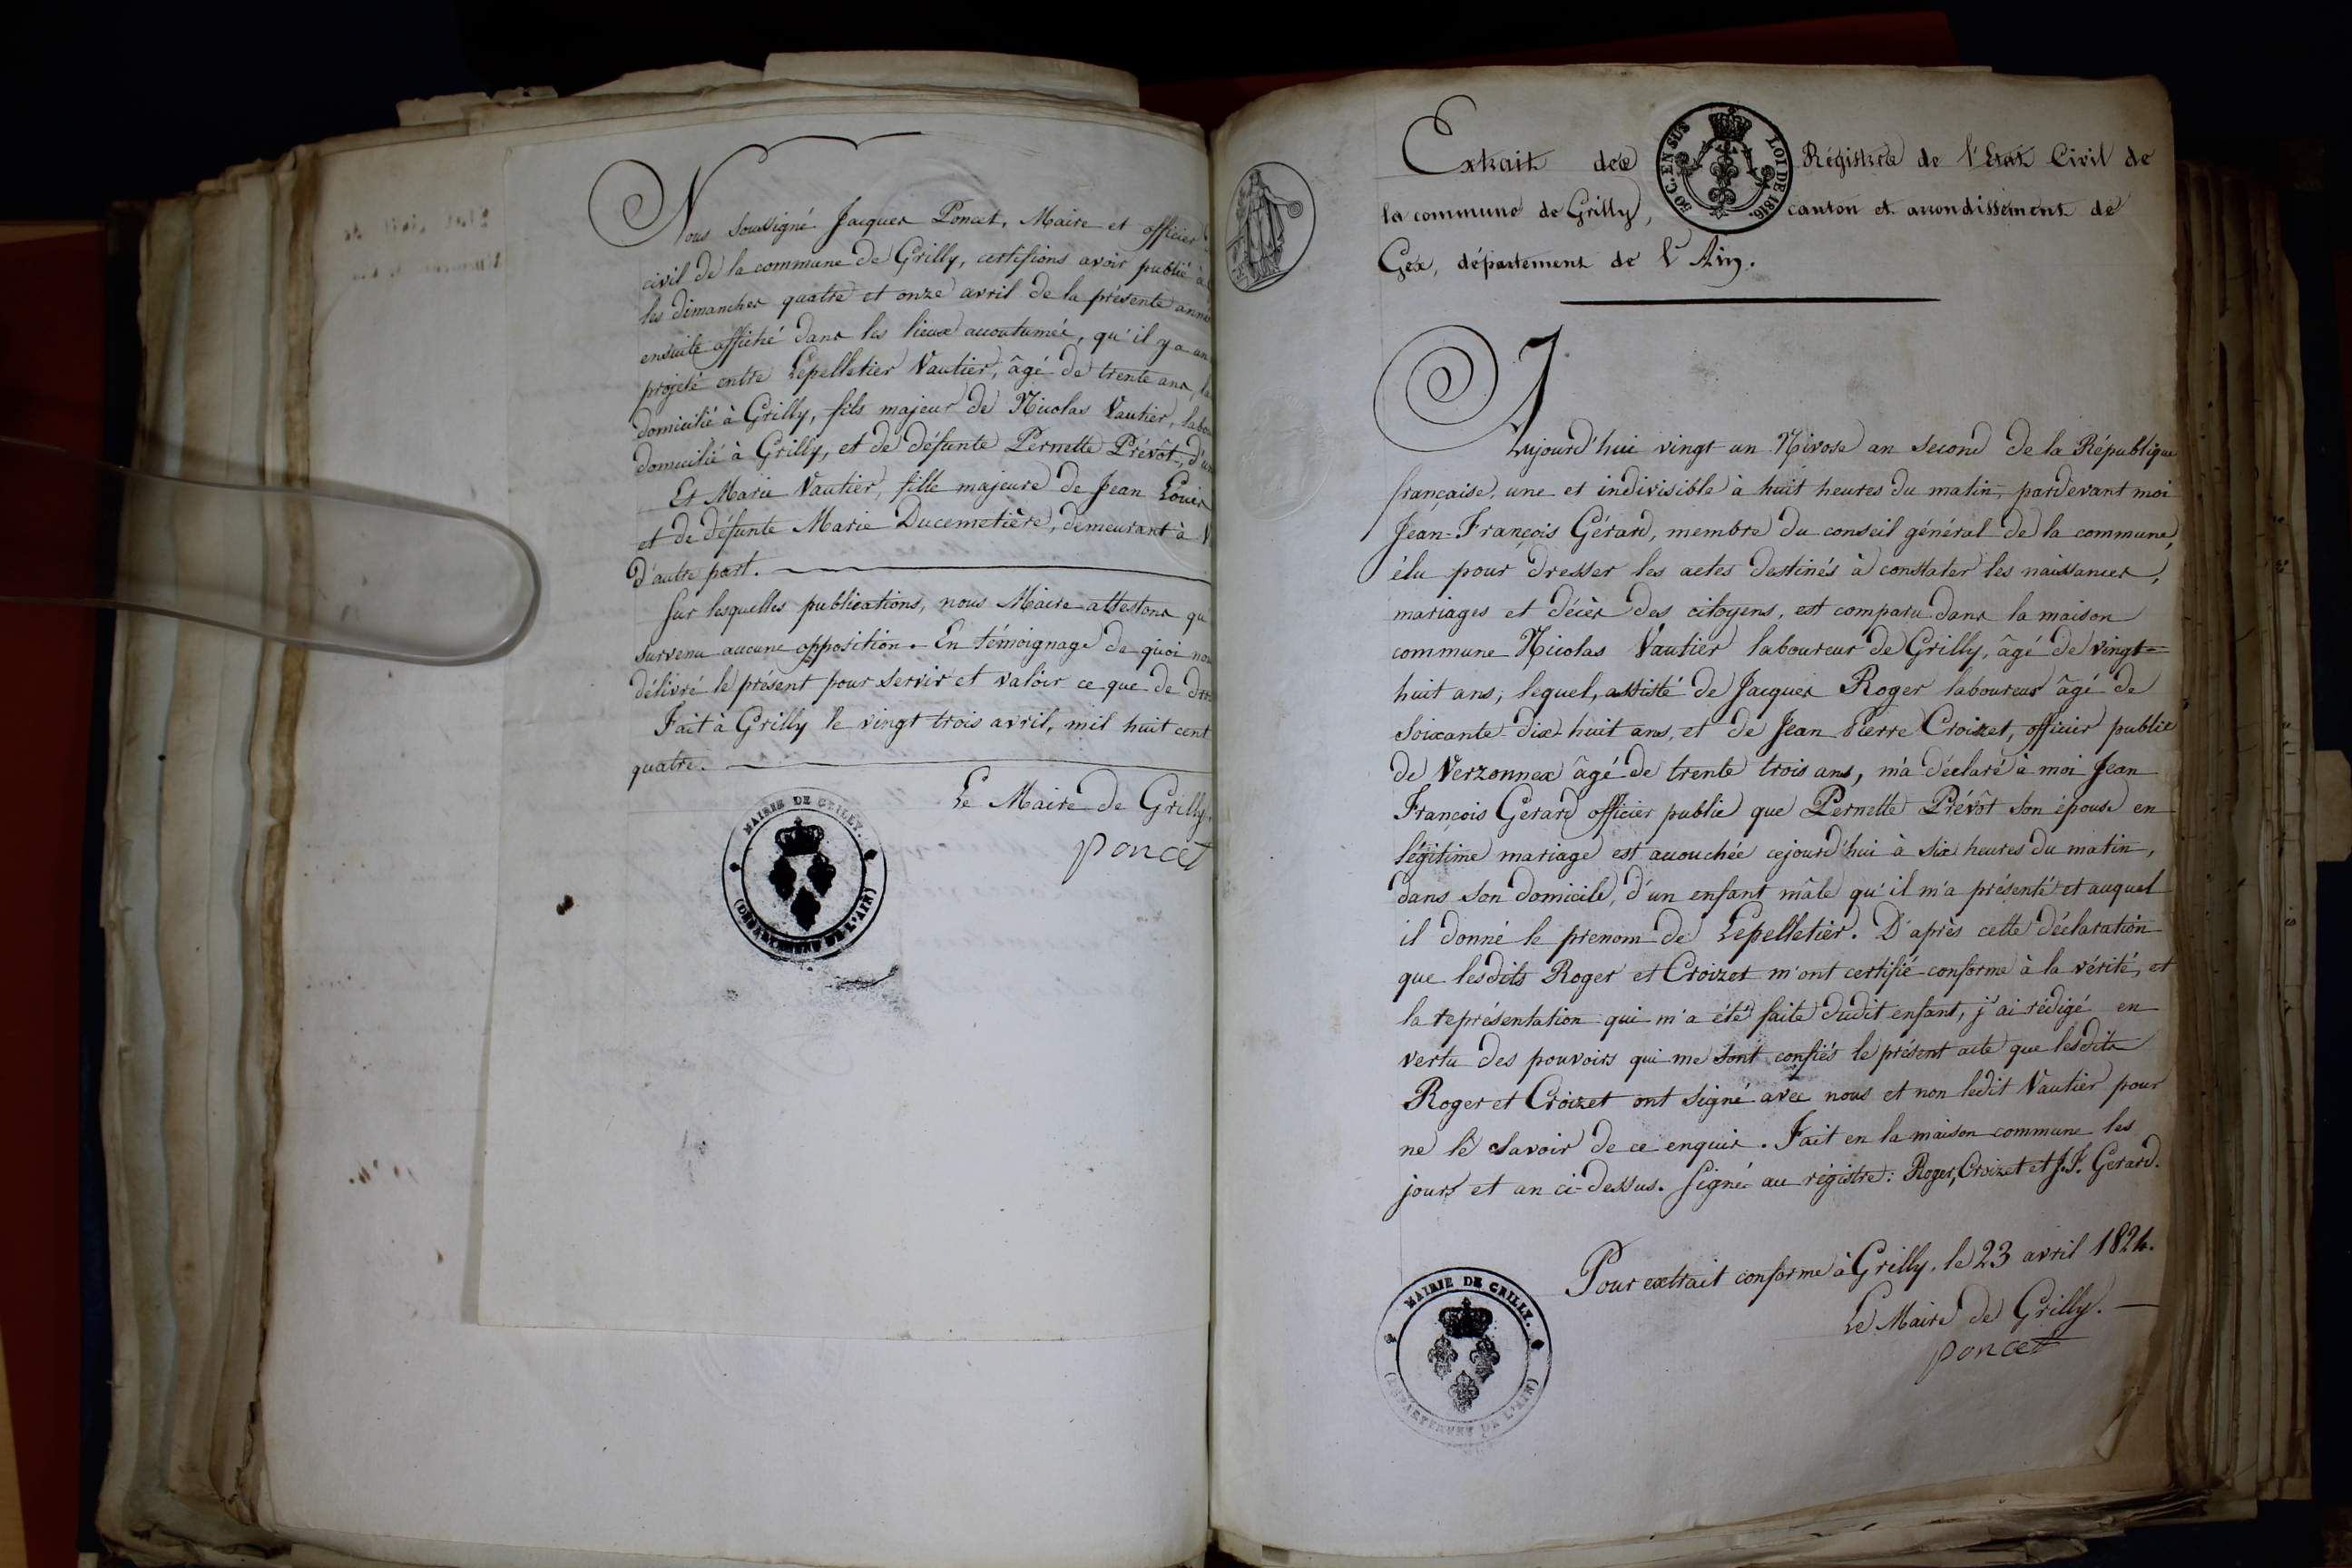 Nous soussigné Jacques Poncet, Maire et officier
civil de la commune de Grilly, certifions avoir publié
les dimanches quatre et onze avril de la présente année
ensuite affiché dans les lieux accoutumés, qu'il y a
projeté entre Lepelletier Vautier, âgé de trente ans,
domicilié à Grilly, fils majeur de Nicolas Vautier,
domicilié à Grilly, et de défunte Pernette Prévôt,
Et Marie Vautier, fille majeure de Jean Louis
et de défunte Marie Ducemetière, demeurant à
d'autre part.
Sur lesquelles publications, nous Maire attestons
survenu aucune opposition. En témoignage de quoi
délivré le présent pour servir et valoir ce que de
Fait à Grilly le vingt trois avril, mil huit cent
quatre.
Le Maire de Grilly.
Poncet
MAIRIE DE GRILLY.
(DÉPARTEMENT DE L'AIN)
Extrait des Régistres de l'Etat Civil de
50 C. EN SUS LOI DE 1816.
la commune de Grilly, canton et arrondissement de
Gex, département de l'Ain.
Aujourd'hui vingt un Nivose an second de la République
française, une et indivisible à huit heures du matin, pardevant moi
Jean-François Gérard, membre du conseil général de la commune,
élu pour dresser les actes destinés à constater les naissances,
mariages et décès des citoyens, est comparu dans la maison
commune Nicolas Vautier laboureur de Grilly, âgé de vingt-
huit ans, lequel, assisté de Jacques Roger laboureur âgé de
soixante-dix-huit ans, et de Jean Pierre Croizet, officier public
de Verzonnex âgé de trente trois ans, m'a déclaré à moi Jean
François Gerard officier public que Pernette Prévôt son épouse en
légitime mariage est accouchée cejourd'hui à six heures du matin,
dans son domicile, d'un enfant mâle qu'il m'a présenté et auquel
il donné le prenom de Lepelletier. D'après cette déclaration
que lesdits Roger et Croizet m'ont certifié conforme à la vérité, et
la représentation qui m'a été faite dudit enfant, j'ai rédigé en
vertu des pouvoirs qui me sont confiés le présent acte que lesdits
Roger et Croizet ont signé avec nous et non ledit Vautier pour
ne le savoir de ce enquis. Fait en la maison commune les
jours et an ci-dessus. Signé au régistre: Roger, Croizet et J.F. Gerard.
Pour extrait conforme à Grilly, le 23 avril 1824.
Le Maire de Grilly.
Poncet
MAIRIE DE GRILLY.
(DÉPARTEMENT DE L'AIN)